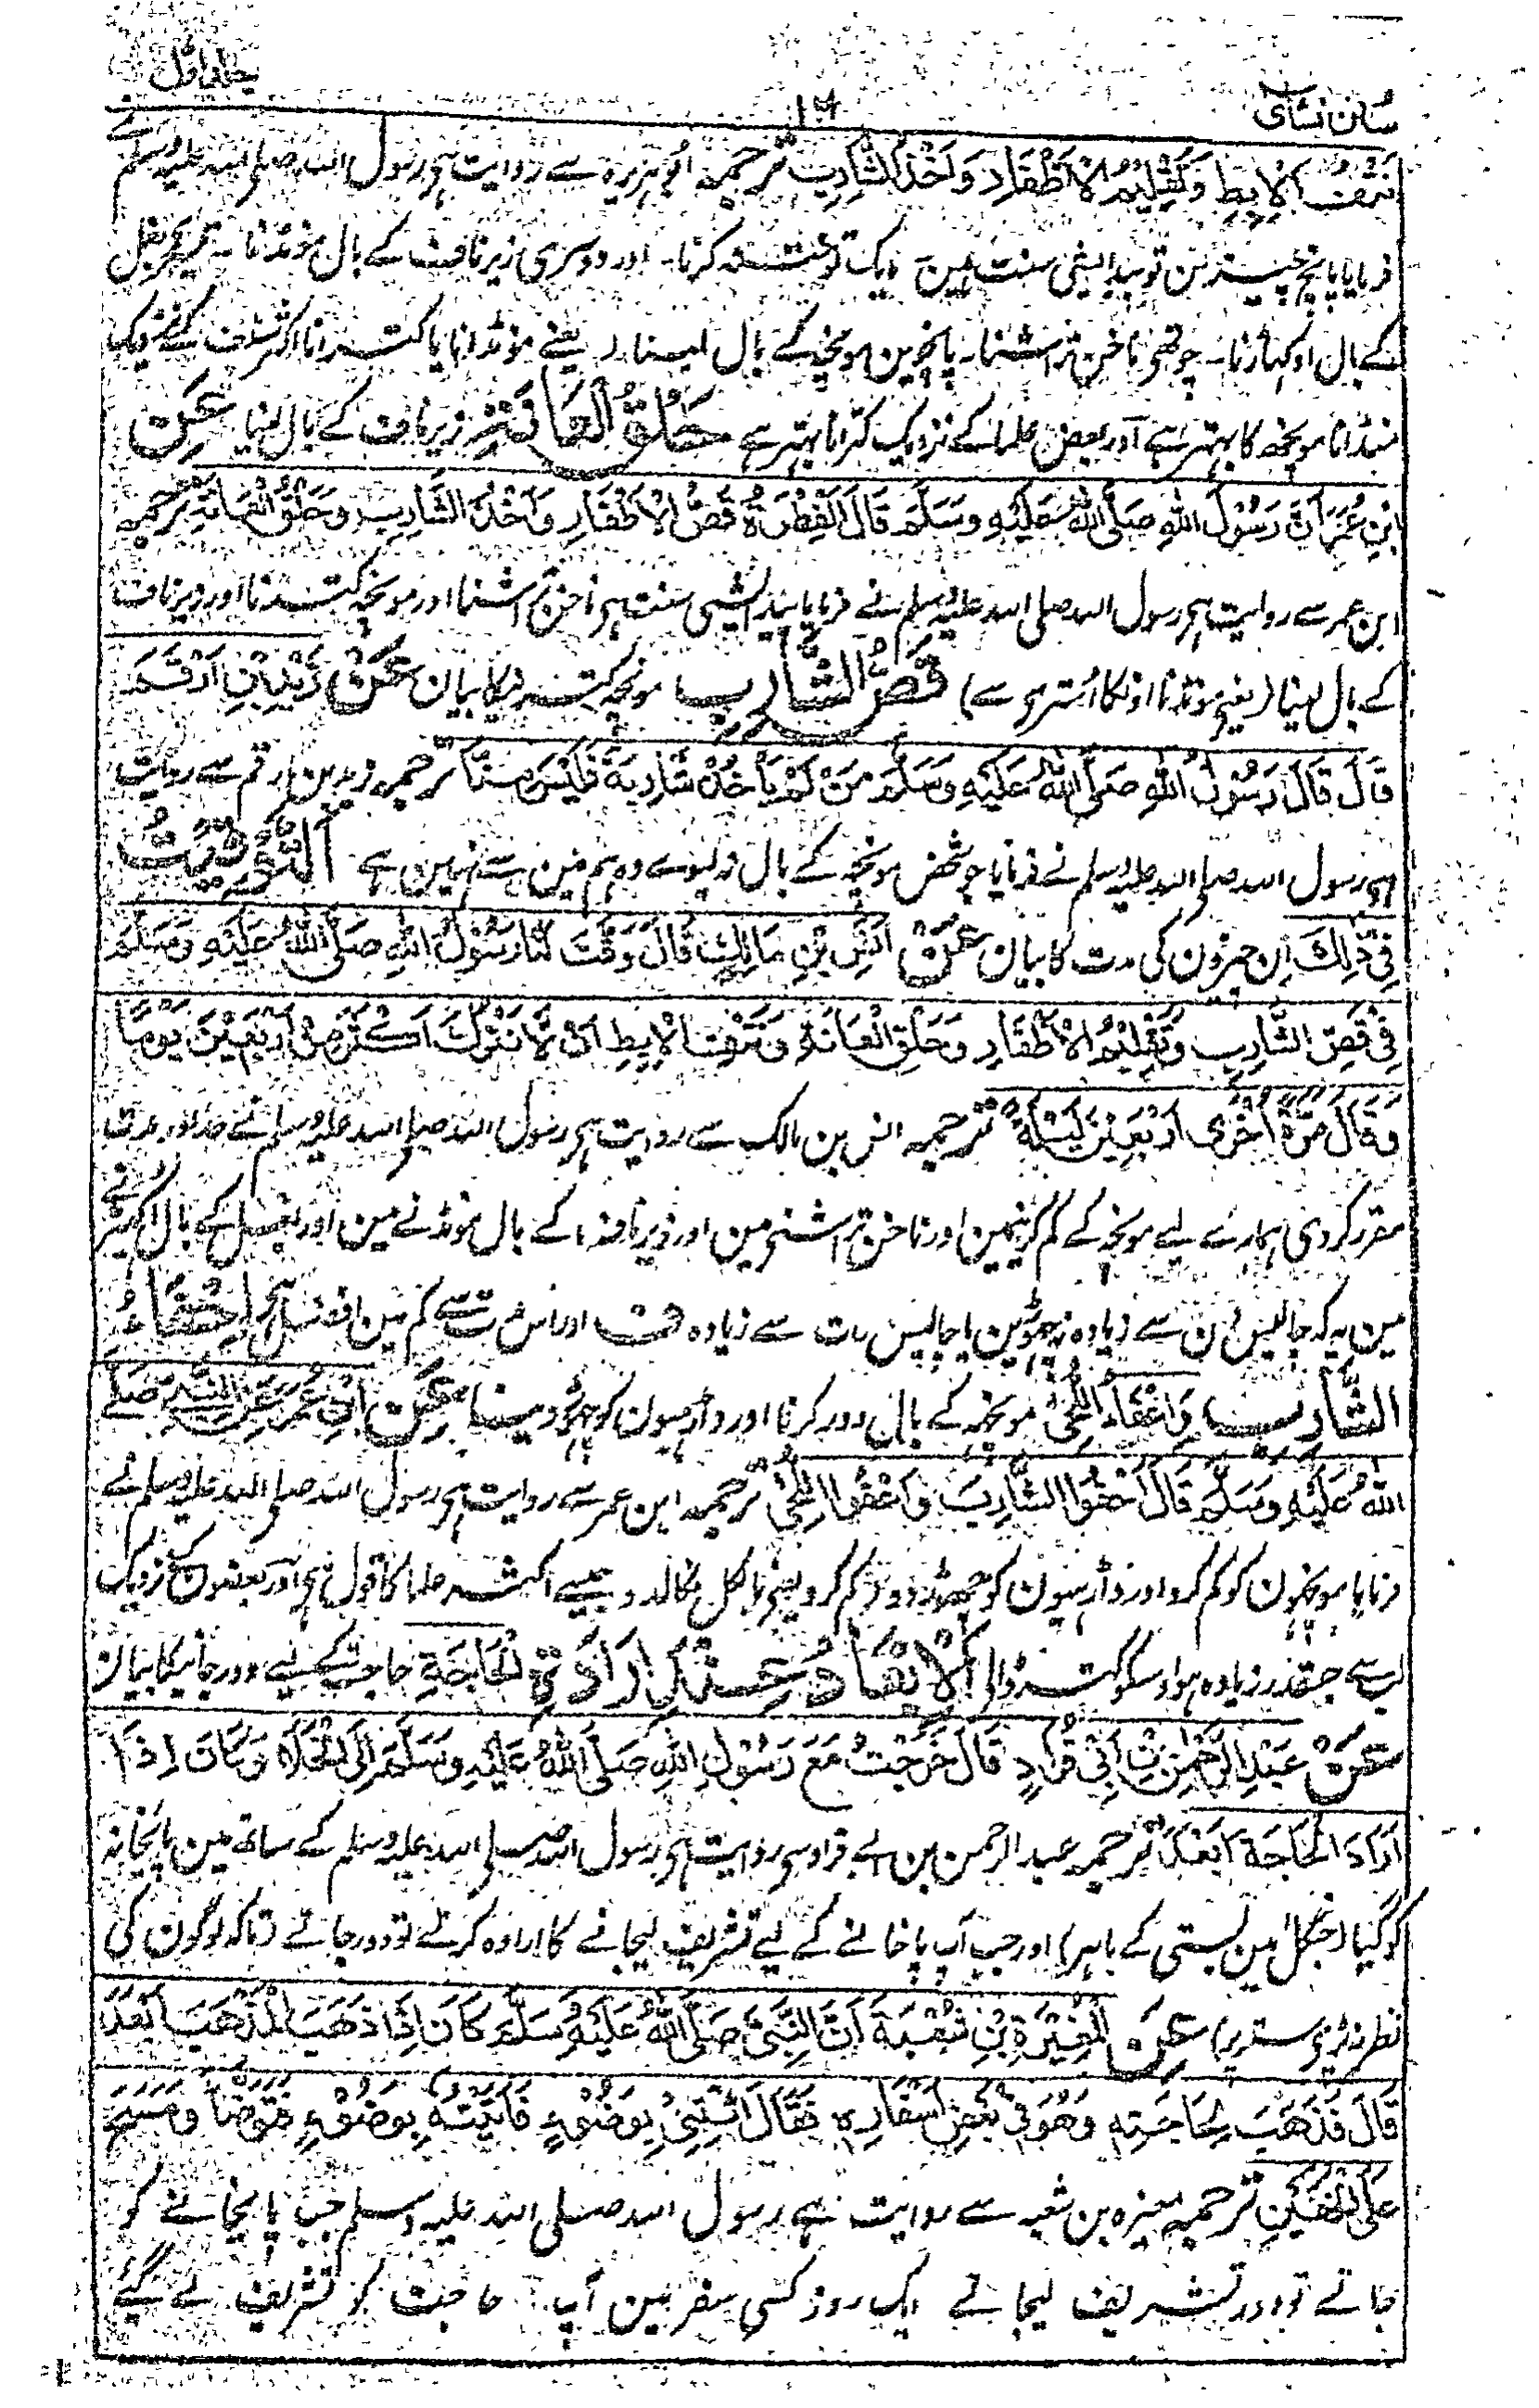 سنن نسائی ۱۴ جلد اول
نَتْفُ الْاِبِطِ وَتَقْلِیْمُ الْاَظْفَارِ وَاَخْذُ الشَّارِبِ ترجمہ ابی ہریرہ سے روایت ہی رسول اللہ صلی اللہ علیہ وسلم نے
فرمایا پانچ چیزین تو پیدایشی سنت ہین ایک تو ختنہ کرنا۔ اور دوسری زیر ناف کے بال مونڈنا۔ تیسری بغل
کے بال اوکہاڑنا۔ چوتھی ناخن تراشنا۔ پانچوین مونچہ کے بال لینا۔ یعنے مونڈانا یا کترانا اکثر سلف کے نزدیک
منڈانا مونچھ کا بہتر ہے اور بعض علما کے نزدیک کترانا بہتر ہے حَلْقُ الْعَانَةِ زیر ناف کے بال لینا عَنِ
ابْنِ عُمَرَ اَنَّ رَسُوْلَ اللّٰہِ صَلَّی اللّٰہُ عَلَیْہِ وَسَلَّمَ قَالَ الْفِطْرَةُ قَصُّ الْاَظْفَارِ وَاَخْذُ الشَّارِبِ وَحَلْقُ الْعَانَةِ ترجمہ
ابن عمر سے روایت ہی رسول اللہ صلی اللہ علیہ وسلم نے فرمایا پیدایشی سنت ہی ناخن تراشنا اور مونچہ کترنا اور زیر ناف
کے بال لینا (یعنے مونڈنا اونکا اُستری سے) قَصُّ الشَّارِبِ مونچہ کترنیکا بیان عَنْ زَیْدِ بْنِ اَرْقَمَ
قَالَ قَالَ رَسُوْلُ اللّٰہِ صَلَّی اللّٰہُ عَلَیْہِ وَسَلَّمَ مَنْ لَمْ یَاْخُذْ شَارِبَہٗ فَلَیْسَ مِنَّا ترجمہ زید بن ارقم سے روایت
ہی رسول اللہ صلی اللہ علیہ وسلم نے فرمایا جو شخص مونچہ کے بال نہ لیوے وہ ہم مین سے نہین ہے اَلتَّوْقِیْتُ
فِیْ ذٰلِكَ اِن چیزون کی مدت کا بیان عَنْ اَنَسِ بْنِ مَالِكٍ قَالَ وَقَّتَ لَنَا رَسُوْلُ اللّٰہِ صَلَّی اللّٰہُ عَلَیْہِ وَسَلَّمَ
فِیْ قَصِّ الشَّارِبِ وَتَقْلِیْمِ الْاَظْفَارِ وَحَلْقِ الْعَانَةِ وَنَتْفِ الْاِبِطِ اَنْ لَّا نَتْرُكَ اَكْثَرَ مِنْ اَرْبَعِیْنَ یَوْمًا
وَقَالَ مَرَّةً اُخْرٰی اَرْبَعِیْنَ لَیْلَةً ترجمہ انس بن مالک سے روایت ہی رسول اللہ صلی اللہ علیہ وسلم نے حد اور مدت
مقرر کردی ہمارے لیے مونچہ کے کم کرنیمین اور ناخن تراشنے مین اور زیر ناف کے بال مونڈنے مین اور بغل کے بال اکھیڑنے
مین یہ کہ چالیس دن سے زیادہ نہ چھوڑین یا چالیس رات سے زیادہ ف اور اس مدت سے کم مین افضل ہی اِحْفَاءُ
الشَّارِبِ وَاِعْفَاءُ اللُّحٰی مونچہ کے بال دور کرنا اور داڑہیون کو چھوڑ دینا عَنِ ابْنِ عُمَرَ عَنِ النَّبِیِّ صَلَّی
اللّٰہُ عَلَیْہِ وَسَلَّمَ قَالَ اَحْفُوا الشَّارِبَ وَاَعْفُوا اللُّحٰی ترجمہ ابن عمر سے روایت ہی رسول اللہ صلی اللہ علیہ وسلم نے
فرمایا مونچہون کو کم کرو اور داڑہیون کو چھوڑ دو کم کرو یعنے بالکل نکالدو جیسے اکثر علما کا قول ہی اور بعضون کے نزدیک
لب سے جسقدر زیادہ ہو اوسکو کتر ڈالو اَلْاِبْعَادُ عِنْدَ اِرَادَةِ الْحَاجَةِ حاجت کے لیے دور جانیکا بیان
عَنْ عَبْدِ الرَّحْمٰنِ بْنِ اَبِیْ قُرَادٍ قَالَ خَرَجْتُ مَعَ رَسُوْلِ اللّٰہِ صَلَّی اللّٰہُ عَلَیْہِ وَسَلَّمَ اِلَی الْخَلَاءِ وَكَانَ اِذَا
اَرَادَ الْحَاجَةَ اَبْعَدَ ترجمہ عبد الرحمن بن ابے قراد سی روایت ہی رسول اللہ صلی اللہ علیہ وسلم کے ساتھ مین پایخانہ
کو گیا (جنگل مین بستی کے باہر) اور جب آپ پاخانے کے لیے تشریف لیجانے کا ارادہ کرتے تو دور جاتے (تاکہ لوگون کی
نظر نہ پڑی ستر پر) عَنِ الْمُغِیْرَةِ بْنِ شُعْبَةَ اَنَّ النَّبِیَّ صَلَّی اللّٰہُ عَلَیْہِ وَسَلَّمَ كَانَ اِذَا ذَهَبَ الْمَذْهَبَ اَبْعَدَ
قَالَ فَذَهَبَ لِحَاجَتِہٖ وَهُوَ فِیْ بَعْضِ اَسْفَارِہٖ فَقَالَ ائْتِنِیْ بِوَضُوْءٍ فَاَتَیْتُہٗ بِوَضُوْءٍ فَتَوَضَّأَ وَمَسَحَ
عَلَی الْخُفَّیْنِ ترجمہ مغیرہ بن شعبہ سے روایت ہے رسول اللہ صلی اللہ علیہ وسلم جب پایخانے کو
جاتے تو دور تشریف لیجاتے ایک روز کسی سفر مین آپ حاجت کو تشریف لے گئے